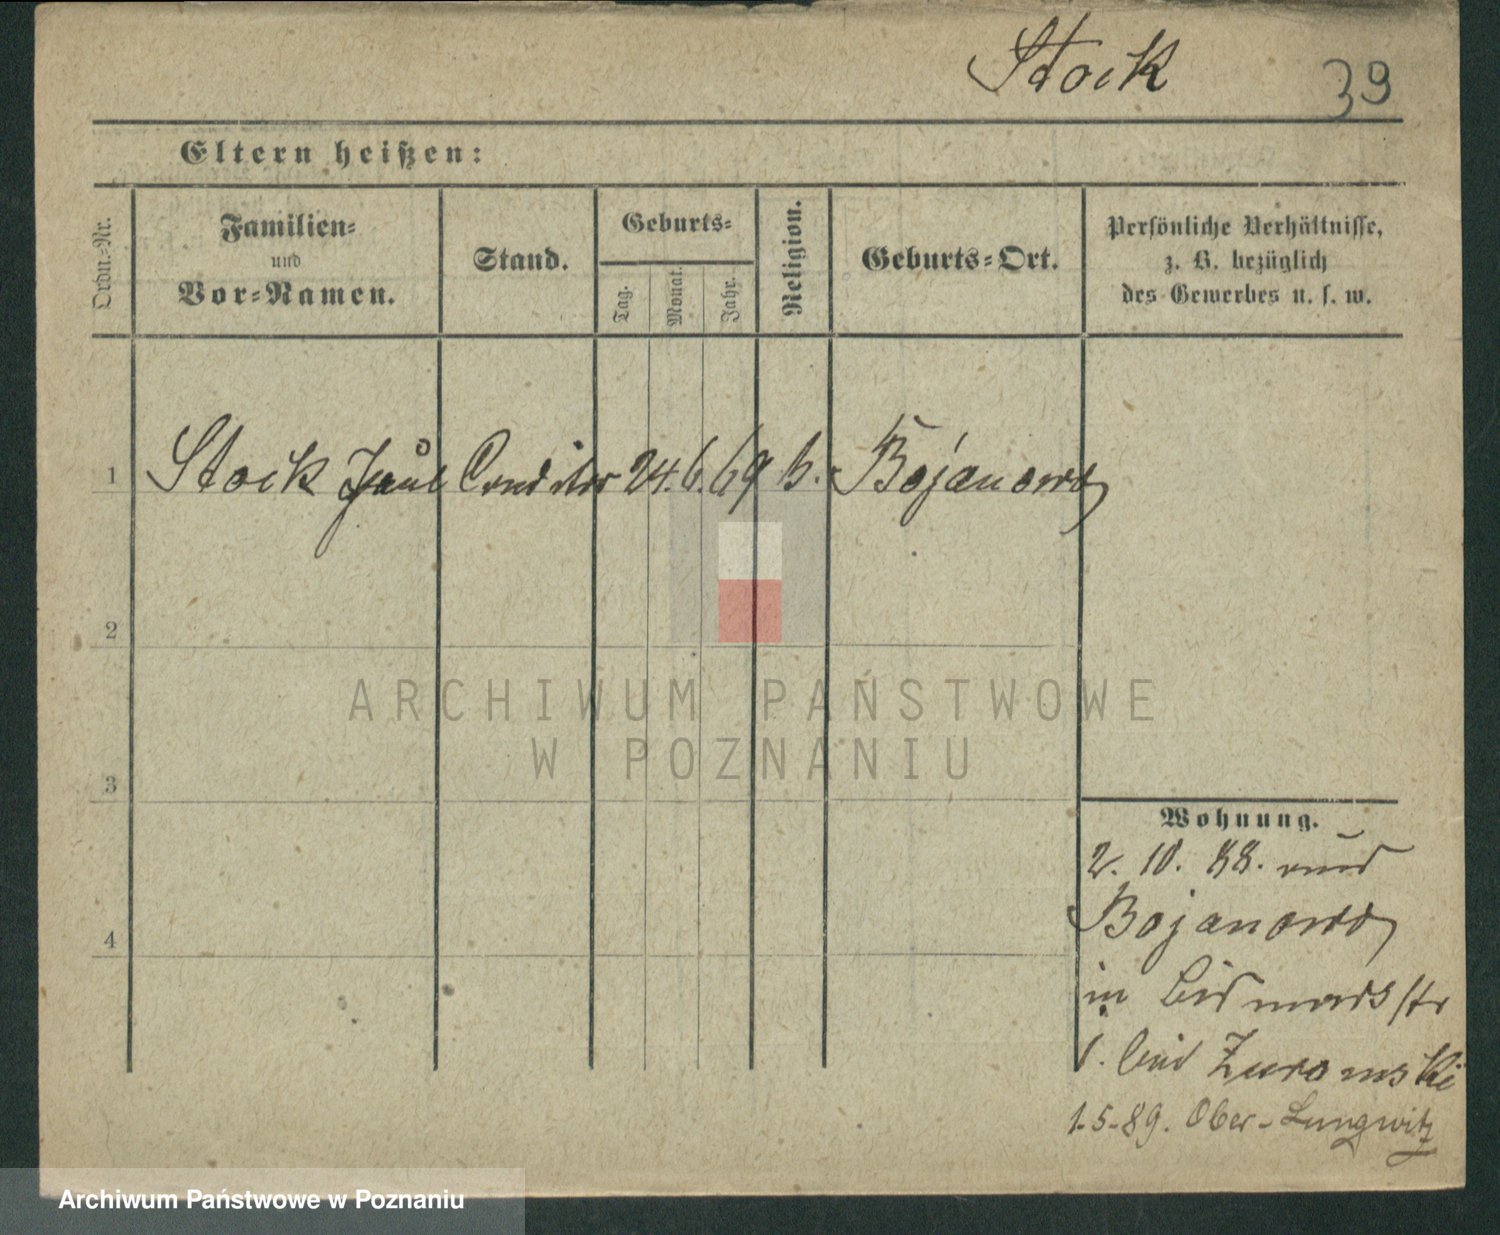 Stock 39
Eltern heißen:
Ordn.-Nr.
Familien-
und
Vor-Namen.
Stand.
Geburts-
Tag.
Monat.
Jahr.
Religion.
Geburts-Ort.
Persönliche Verhältnisse,
z. B. bezüglich
des Gewerbes u. s. w.
1 Stock Paul Conditor 24. 6. 69 Bojanowo
2
3
4
ARCHIWUM PAŃSTWOWE
W POZNANIU
Wohnung.
2. 10. 88. aus
Bojanowo
in Bismarckstr
bei Zuromski
1.5.89. Ober-Lungwitz
Archiwum Państwowe w Poznaniu